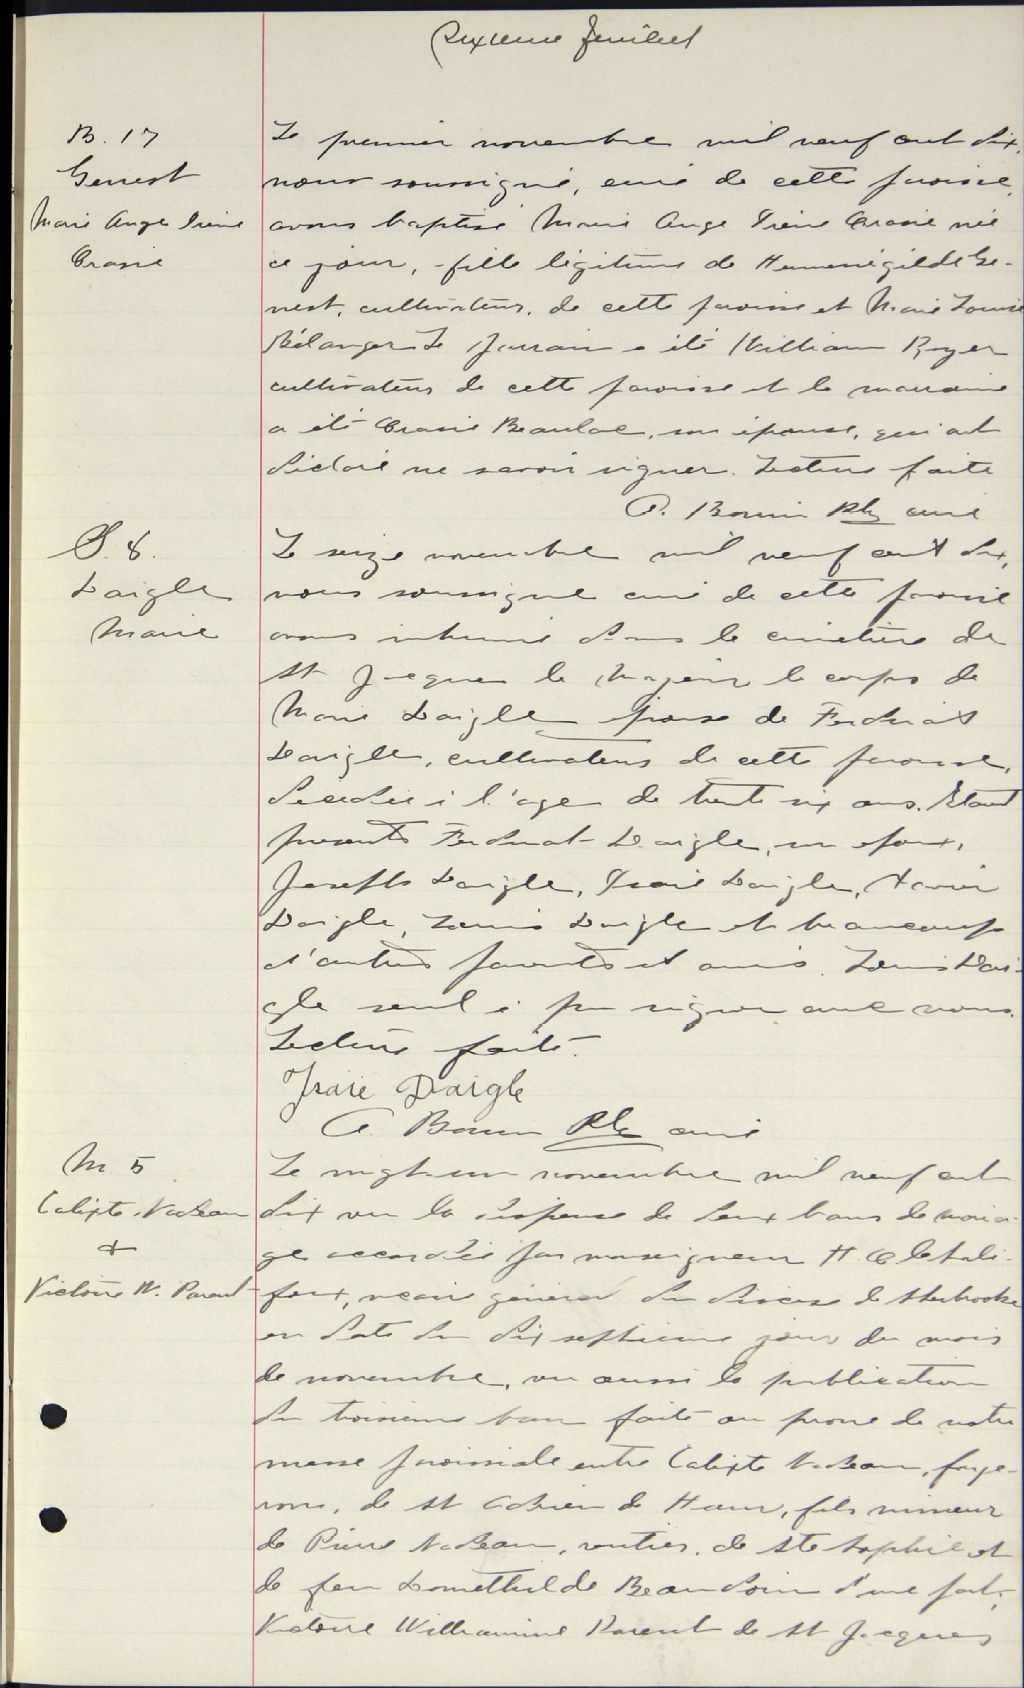 Sixième feuillet
B. 17
Genest
Marie Ange Irène
Orasie
Le premier novembre mil neuf cent dix,
nous soussigné, curé de cette paroisse,
avons baptisé Marie Ange Irène Orasie née
ce jour, fille légitime de Hermenégilde Ge-
nest, cultivateur, de cette paroisse et Marie Louise
Bélanger Le parrain a été William Royer
cultivateur de cette paroisse et la marraine
a été Orasie Beaulac, son épouse, qui ont
déclaré ne savoir signer. Lecture faite
P. Bonin Ptre curé
S. 8.
Daigle
Marie
Le seize novembre mil neuf cent dix,
nous soussigné curé de cette paroisse
avons inhumé dans le cimetière de
St Jacques le Majeur le corps de
Marie Daigle épouse de Ferdinat
Daigle, cultivateur de cette paroisse,
décédée à l'age de trente six ans. Etant
présents Ferdinat Daigle, son époux,
Joseph Daigle, Isaïe Daigle, Xavier
Daigle, Louis Daigle et beaucoup
d'autres parents et amis. Louis Dai-
gle seul a pu signer avec nous.
Lecture faite.
Isaie Daigle
C. Bonin Ptre curé
M 5
Calixte Nadeau
&
Victoire W. Parent
Le vingt-un novembre mil neuf cent
dix vu la dispense de deux bans de maria-
ge accordée par monseigneur H. O Chali-
foux, vicaire général du diocèse de Sherbrooke
en date du dix septième jour du mois
de novembre, vu aussi la publication
du troisième ban faite au prone de notre
messe paroissiale entre Calixte Nadeau, forge-
ron, de St Adrien de Ham, fils mineur
de Pierre Nadeau, rentier, de Ste Sophie et
de feu Domethilde Beaudoin d'une part,
Victoire Williamine Parent de St Jacques